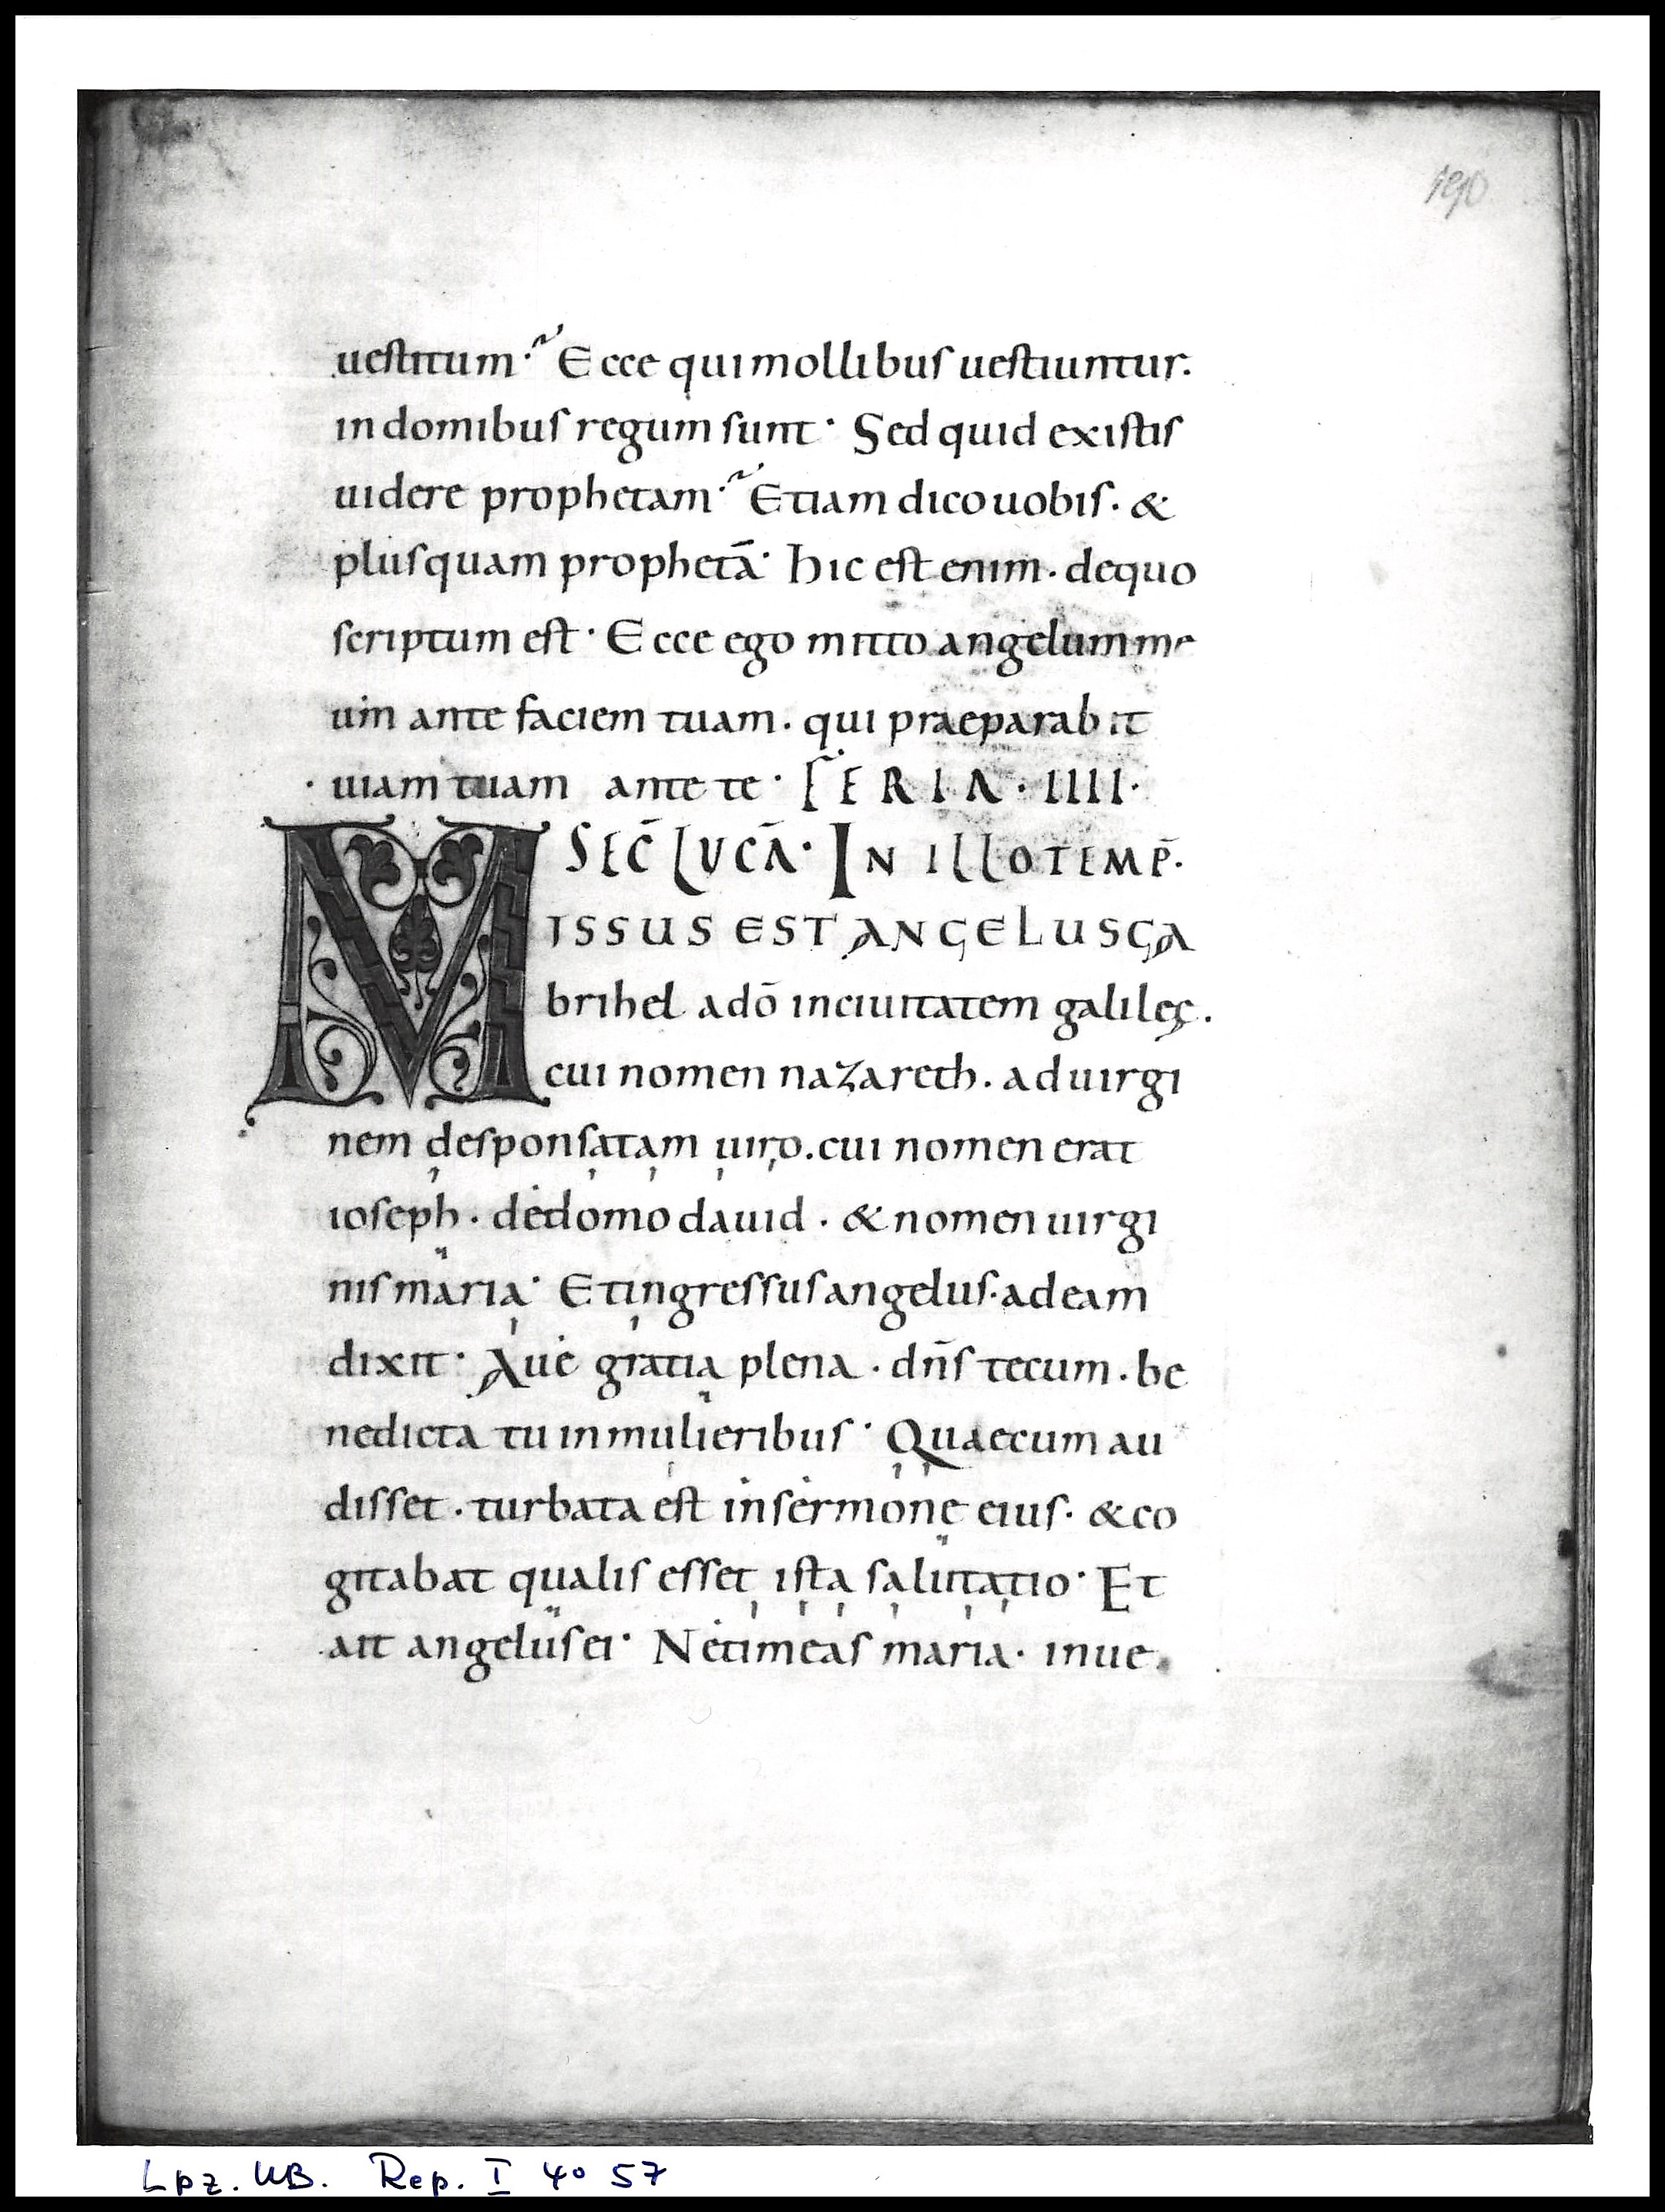 190
uestitum. Ecce qui mollibus uestiuntur.
in domibus regum sunt. Sed quid existis
uidere prophetam. Etiam dico uobis. &
plus quam prophetā. hic est enim. de quo
scriptum est. Ecce ego mitto angelum me
um ante faciem tuam. qui praeparabit
uiam tuam ante te. FERIA. IIII.
SEC̄ LUCĀ. IN ILLO TEMP̄.
MISSUS EST ANGELUS GA
brihel a dō in ciuitatem galileę.
cui nomen nazareth. ad uirgi
nem desponsatam uiro. cui nomen erat
ioseph. de domo dauid. & nomen uirgi
nis maria. Et ingressus angelus. ad eam
dixit. Aue gratia plena. dn̄s tecum. be
nedicta tu in mulieribus. Quae cum au
disset. turbata est in sermone eius. & co
gitabat qualis esset ista salutatio. Et
ait angelus ei. Ne timeas maria. inue
Lpz. UB. Rep. I 4° 57